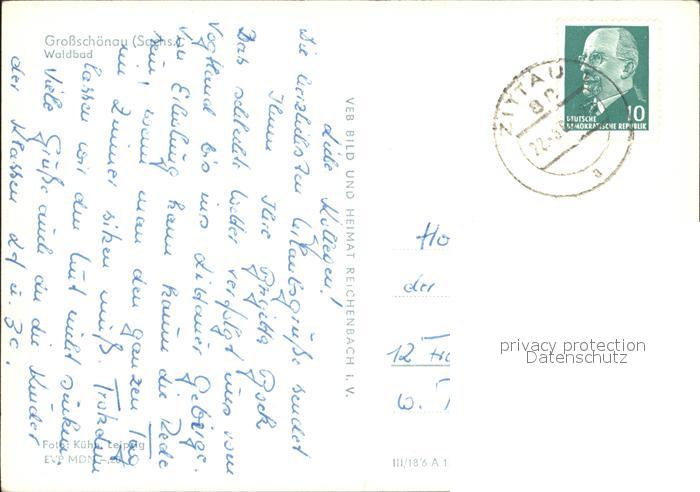 Großschönau (Sachs.)
Waldbad
Liebe Kollegen!
Die herzlichsten Urlaubsgrüße sendet
Ihnen Ihre Brigitte
Das schlechte Wetter verfolgt uns vom
Vogtland bis ins Zittauer Gebirge.
Von Erholung kann kaum die Rede
sein, wenn man den ganzen Tag
im Zimmer sitzen muß. Trotzdem
lassen wir den Mut nicht sinken.
Viele Grüße auch an die Kinder
der Klassen 2d u. 3c.
Foto: Kühn, Leipzig
EVP MDN
VEB BILD UND HEIMAT REICHENBACH i. V.
III/18/6 A 1
ZITTAU
a
DEUTSCHE
DEMOKRATISCHE REPUBLIK
10
Ho
der
12
privacy protection
Datenschutz